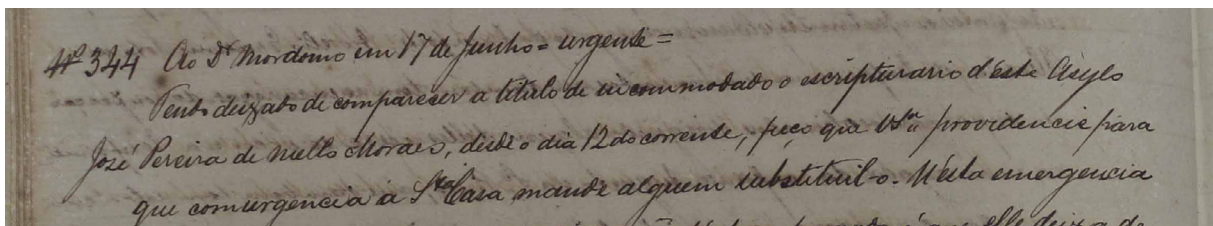 Nº 344 Ao Dr Mordomo em 17 de Junho = urgente =
Tendo deixado de comparecer a titulo de incommodado o escripturario d'este Asylo
José Pereira de Mello Moraes, desde o dia 12 do corrente, peço que Vsª providencie para
que com urgencia a Sta Casa mande alguem substituil-o. N'esta emergencia
elle deixa de